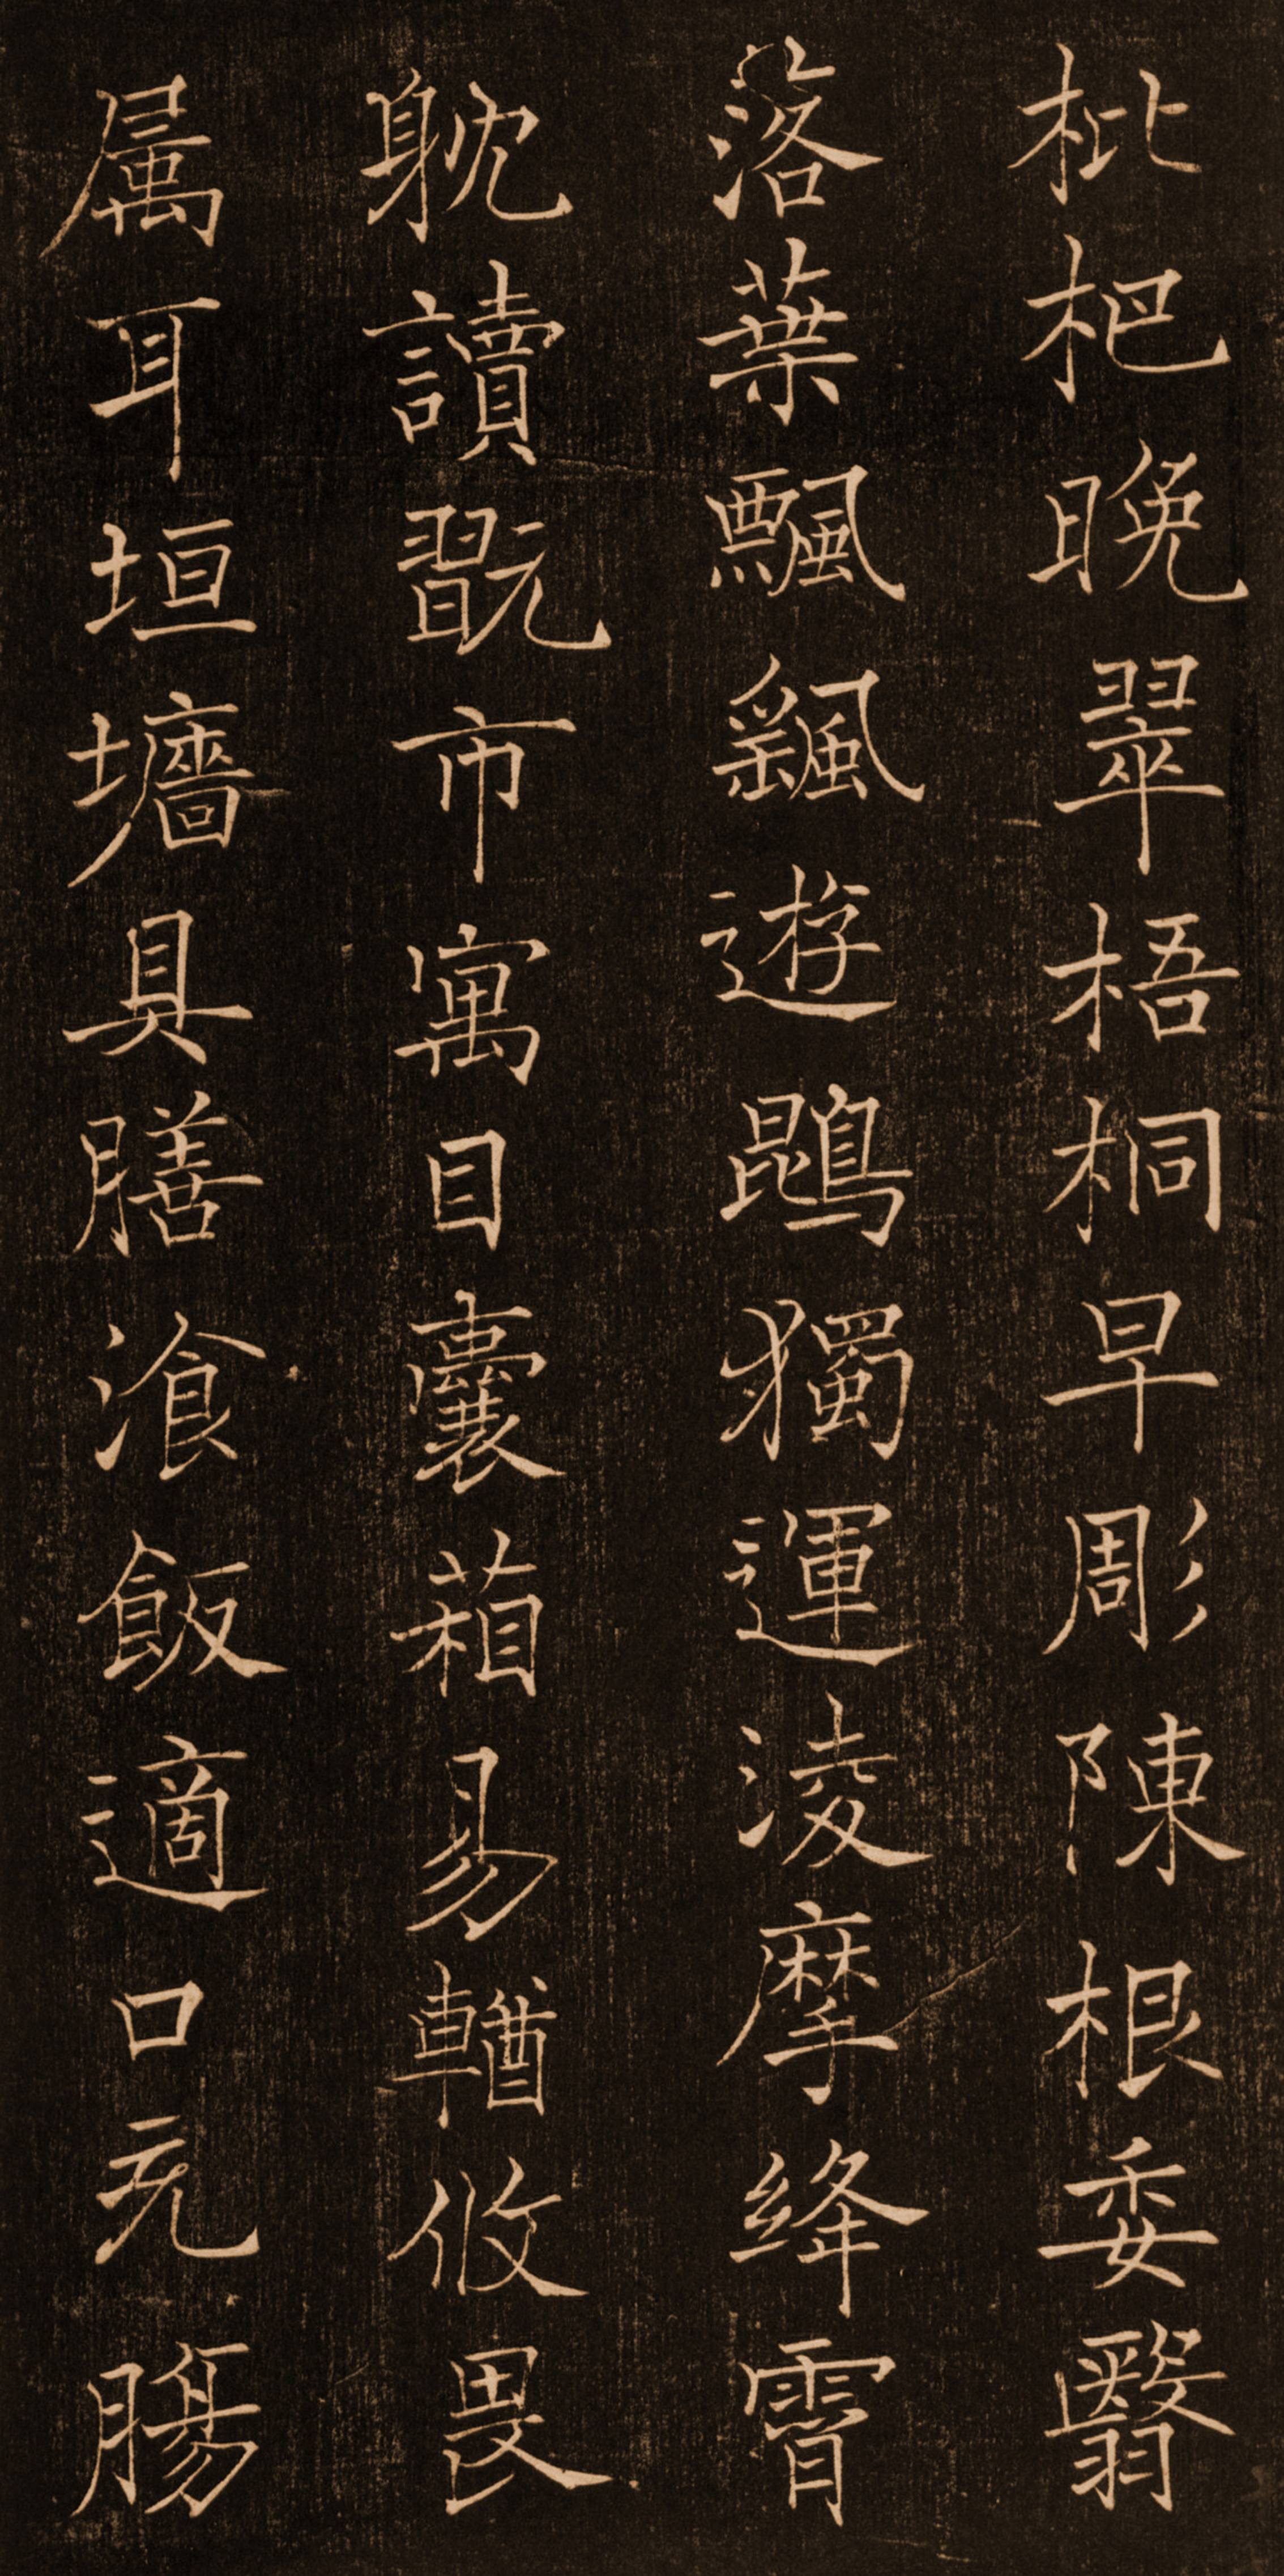 枇杷晚翠梧桐早彫陳根委翳
落葉飄颻遊鵾獨運淩摩絳霄
躭讀翫市寓目囊葙易輶攸畏
属耳垣墻具膳飡飯適口充腸